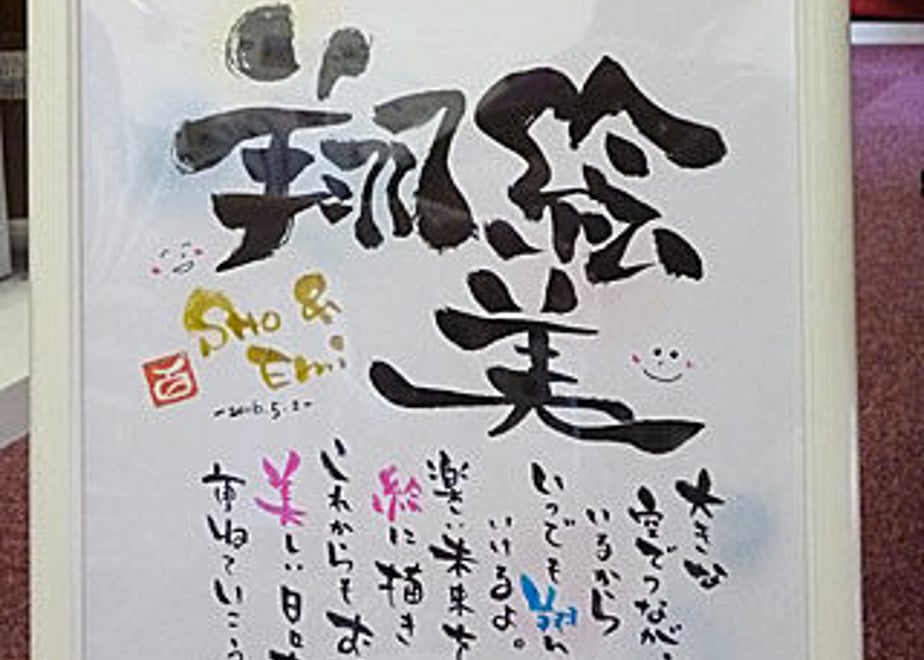 絵美
翔
Sho &
Emi
大きな
空でつなが
いるから
いつでも翔ん
いけるよ。
楽しい未来を
絵に描き
これからもお
美しい日々
重ねていこう